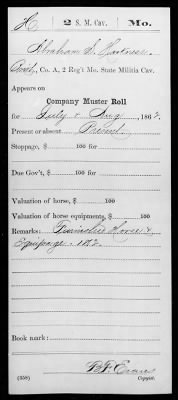 H 2 S. M. Cav. Mo.
Abraham S. Harkness
Co. A, 2 Reg't Mo. State Militia Cav.
Appears on
Company Muster Roll
for July & Aug, 1862.
Present or absent Present
Stoppage, $ 100 for
Due Gov't, $ 100 for
Valuation of horse, $ 100
Valuation of horse equipments, $ 100
Remarks: Furnished Horse &
Equipage. 1862.
Book mark:
(358) Copyist.